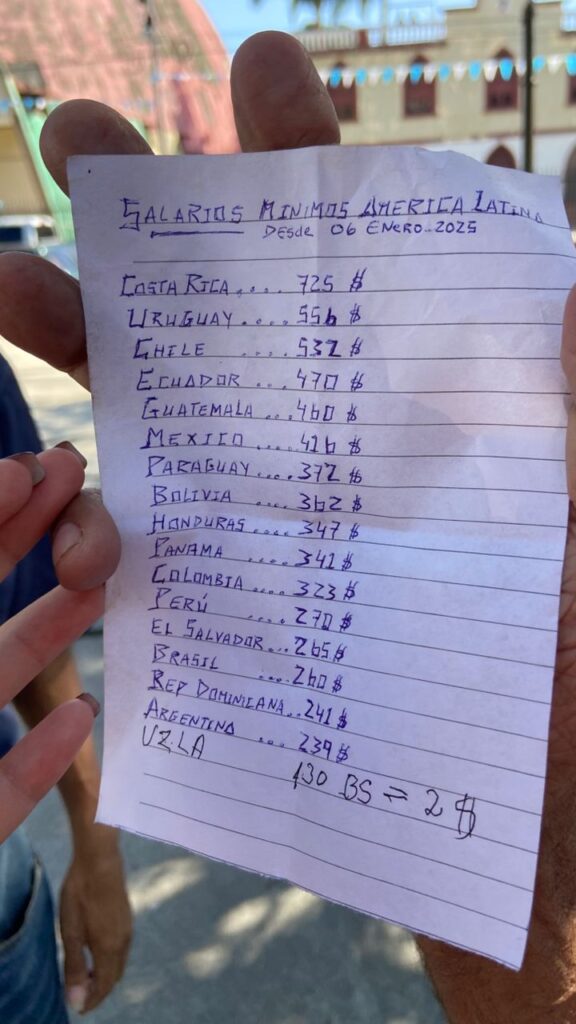 SALARIOS MINIMOS AMERICA LATINA
DESDE 06 ENERO-2025
COSTA RICA.... 725 $
URUGUAY..... 556 $
CHILE .... 532 $
ECUADOR ... 470 $
GUATEMALA ... 460 $
MEXICO .... 416 $
PARAGUAY.... 372 $
BOLIVIA .... 362 $
HONDURAS .... 347 $
PANAMA .... 341 $
COLOMBIA .... 323 $
PERÚ .... 270 $
EL SALVADOR... 265 $
BRASIL .... 260 $
REP DOMINICANA.. 241 $
ARGENTINA ... 239 $
VZLA 130 BS = 2 $